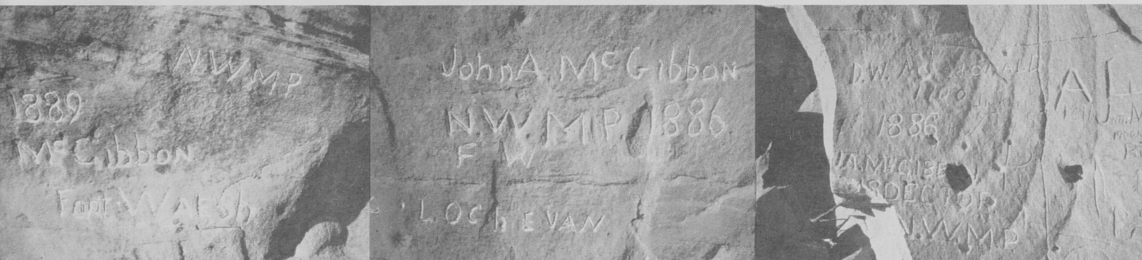 N.W.M.P
1889
McGibbon
Fort Walsh
John A. McGibbon
N.W.M.P 1886
F W
LOChEVAN
1886
N.W.M.P
A H